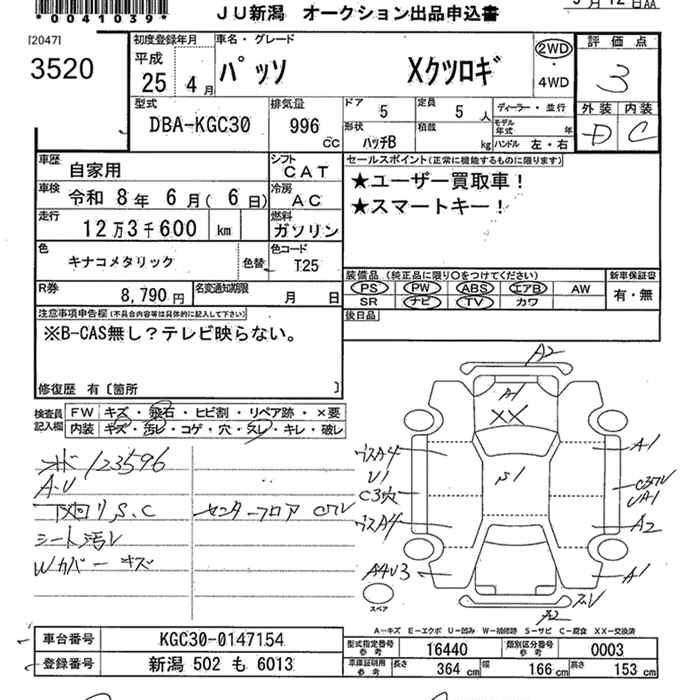 *0041039*
JU新潟 オークション出品申込書
[2047]
3520
初度登録年月
平成
25 4月
車名・グレード
パッソ Xクツロギ
2WD
・
4WD
評価点
3
外装 内装
D C
型式
DBA-KGC30
排気量
996
CC
ドア
5
定員
5 人
形状
ハッチB
積載
kg
ディーラー・並行
モデル年式 年
ハンドル 左・右
車歴
自家用
シフト
CAT
車検
令和 8年 6月( 6日)
冷房
AC
走行
12万3千600 km
燃料
ガソリン
色
キナコメタリック
色替
色コード
T25
R券
8,790円
名変通知期限
月 日
セールスポイント(正常に機能するものに限ります)
★ユーザー買取車!
★スマートキー!
装備品 (純正品に限り○をつけてください)
PS PW ABS エアB AW
SR ナビ TV カワ
新車保証書
有・無
後日品
注意事項申告欄(不具合内容等は具体的に記入して下さい)
※B-CAS無し?テレビ映らない。
修復歴 有〔箇所 〕
検査員
記入欄
FW キズ・飛石・ヒビ割・リペア跡・×要
内装 キズ・汚レ・コゲ・穴・スレ・キレ・破レ
123596
A・U
下廻りS.C
シート汚レ
Wカバーキズ
センターフロア
A2
A1
XX
S1
A4
U1
C3穴
A4
A4U3
A1
UA1
A2
A1
A2
スペア
A-キズ E-エクボ U-凹み W-補修跡 S-サビ C-腐食 XX-交換済
車台番号
KGC30-0147154
登録番号
新潟 502 も 6013
型式指定番号
参考
16440
類別区分番号
参考
0003
車庫証明用
参考
長さ
364 cm
幅
166 cm
高さ
153 cm